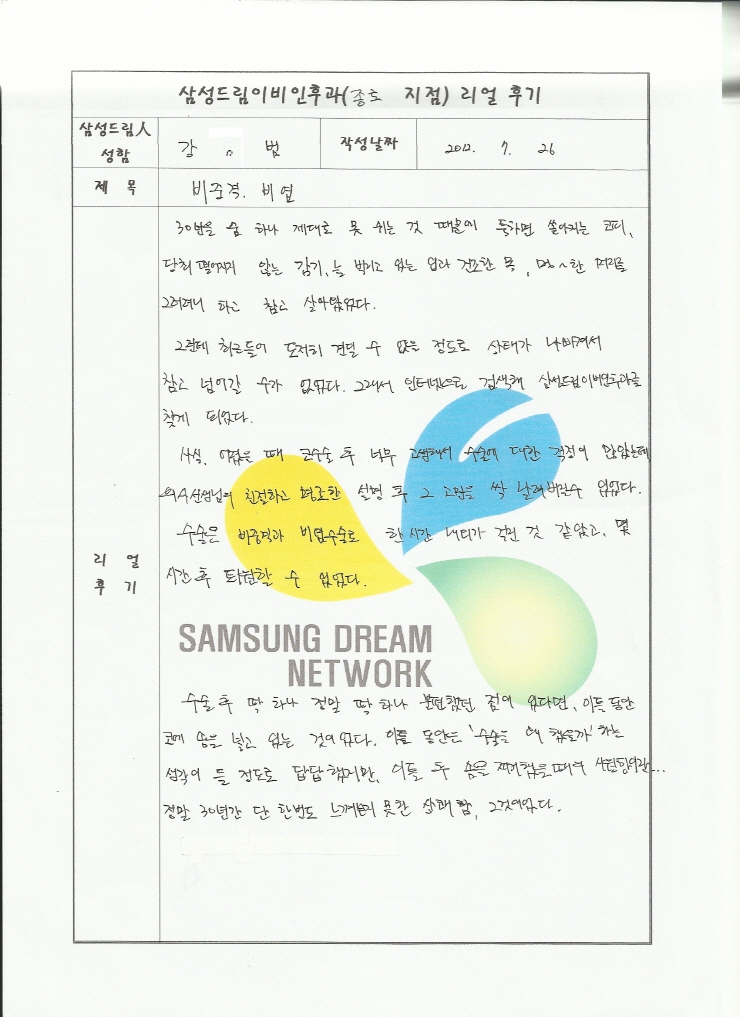 삼성드림이비인후과(종로 지점) 리얼 후기
삼성드림人 성함
강 범
작성날짜
2012. 7. 26
제 목
비중격. 비염
리 얼 후 기
30년을 숨 하나 제대로 못 쉬는 것 때문에 툭하면 쏟아지는 코피,
당최 떨어지지 않는 감기, 늘 벌리고 있는 입과 건조한 목, 멍~한 머리를
그러려니 하고 참고 살아왔었다.
그런데 최근들어 도저히 견딜 수 없을 정도로 상태가 나빠져서
참고 넘어갈 수가 없었다. 그래서 인터넷으로 검색해 삼성드림이비인후과를
찾게 되었다.
사실, 어렸을 때 코수술 후 너무 고생해서 수술에 대한 걱정이 많았는데
의사선생님의 친절하고 명료한 설명 후 그 고민을 싹 날려버릴수 있었다.
수술은 비중격과 비염수술로 한시간 내외가 걸린 것 같았고, 몇
시간 후 퇴원할 수 있었다.
SAMSUNG DREAM
NETWORK
수술 후 딱 하나 정말 딱 하나 불편했던 점이 있다면, 이틀 동안
코에 솜을 넣고 있는 것이었다. 이틀 동안은 '수술을 왜 했을까' 하는
생각이 들 정도로 답답했지만, 이틀 후 솜을 제거했을때의 시원함이란...
정말 30년간 단 한번도 느껴보지 못한 상쾌함, 그것이었다.